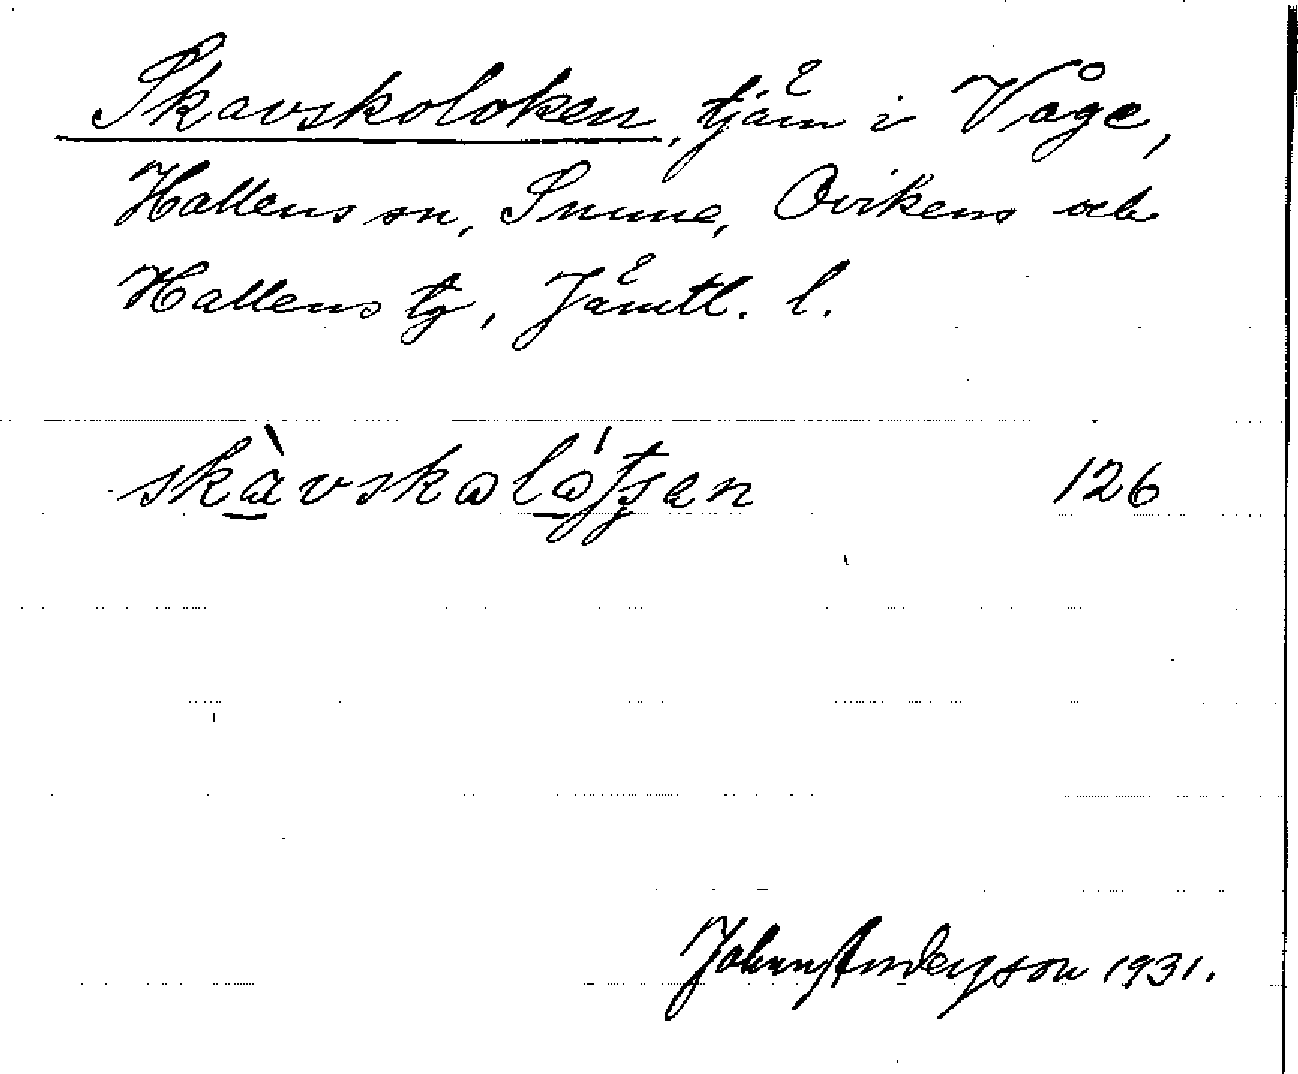 Skavskoloken, tjärn i Våge,
Hallens sn, Sunne, Ovikens och
Hallens tg, Jämtl. l.
skàvskaló̱tʃen 126
Johan Anderson 1931.